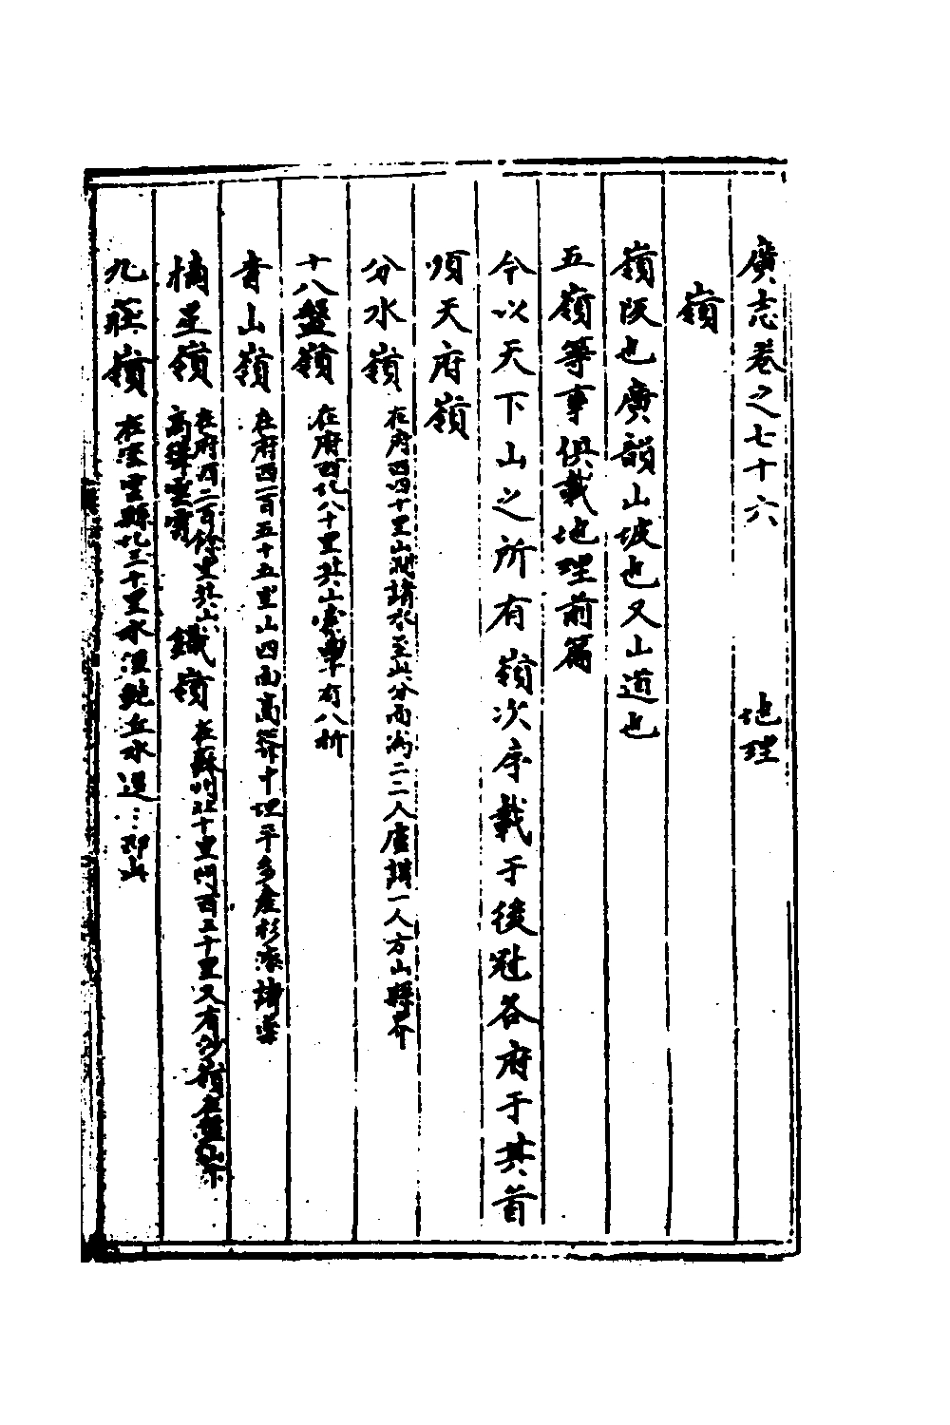 廣志卷之七十六 地理
嶺
嶺阪也廣韻山坡也又山道也
五嶺等事俱載地理前篇
今以天下山之所有嶺次序載于後冠各府于其首
順天府嶺
分水嶺 在府西四十里山澗諸水至此分而為二一入盧溝一入房山縣界
十八盤嶺 在府西北八十里其山
青山嶺 在府西一百五十五里山四面高 十 平多產杉漆諸
摘星嶺 在府西二百 里其山高 雲霄 鐵嶺 在 州北十里 西五十里又有沙嶺在
九莊嶺 在密雲縣北三十里水 鮑丘水